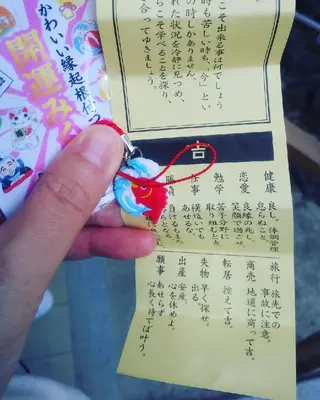 かわいい縁起根付つ
開運み
こそ出来る事は何でしょう
時も苦しい時も、「今」とい
の時しかありません。
れた状況を冷静に見つめ、
らこそ学べることを探り、
合ってゆきましょう。
吉
健康 良し。体調管理
怠らぬこと。
恋愛 良縁の兆し。
笑顔で過ごせ。
勉学 苦手分野に
取り組むと
仕事 横這いでも
あせるな。
負けるも
旅行 旅先での
事故に注意。
商売 地道に商って吉。
転居 控えて吉。
失物 早く探せ。
出る。
出産 安産。
心を休めよ。
願事 あせらず
心長く待てば叶う。